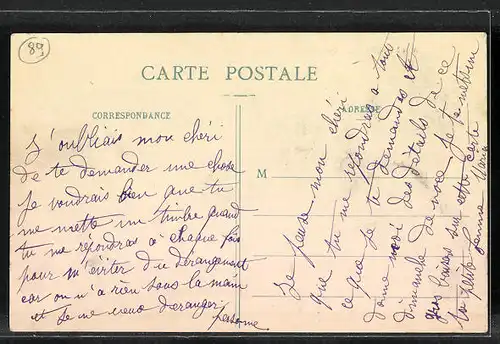 89
CARTE POSTALE
CORRESPONDANCE
ADRESSE
M
J'oubliais mon chéri
de te demander une chose
Je voudrais bien que tu
me mette un timbre quand
tu me répondras à chaque fois
pour m'éviter du dérangement
car on n'a rien sous la main
et je ne veux déranger
personne
Je pense mon chéri
que tu me répondras a tout
ce que je te demandes et
donne moi des détails de ce
dimanche de noce. Je te
gros baises sur cette carte
ta petite femme Maria